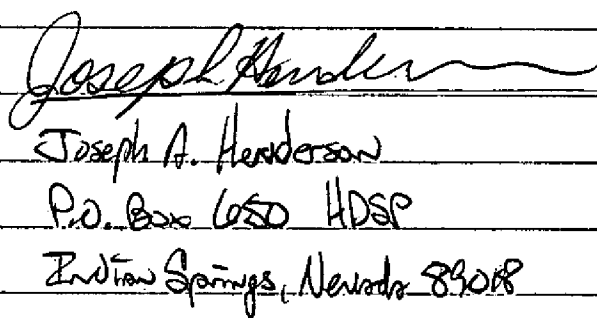 Joseph Henderson
Joseph A. Henderson
P.O. Box 650 HDSP
Indian Springs, Nevada 89018